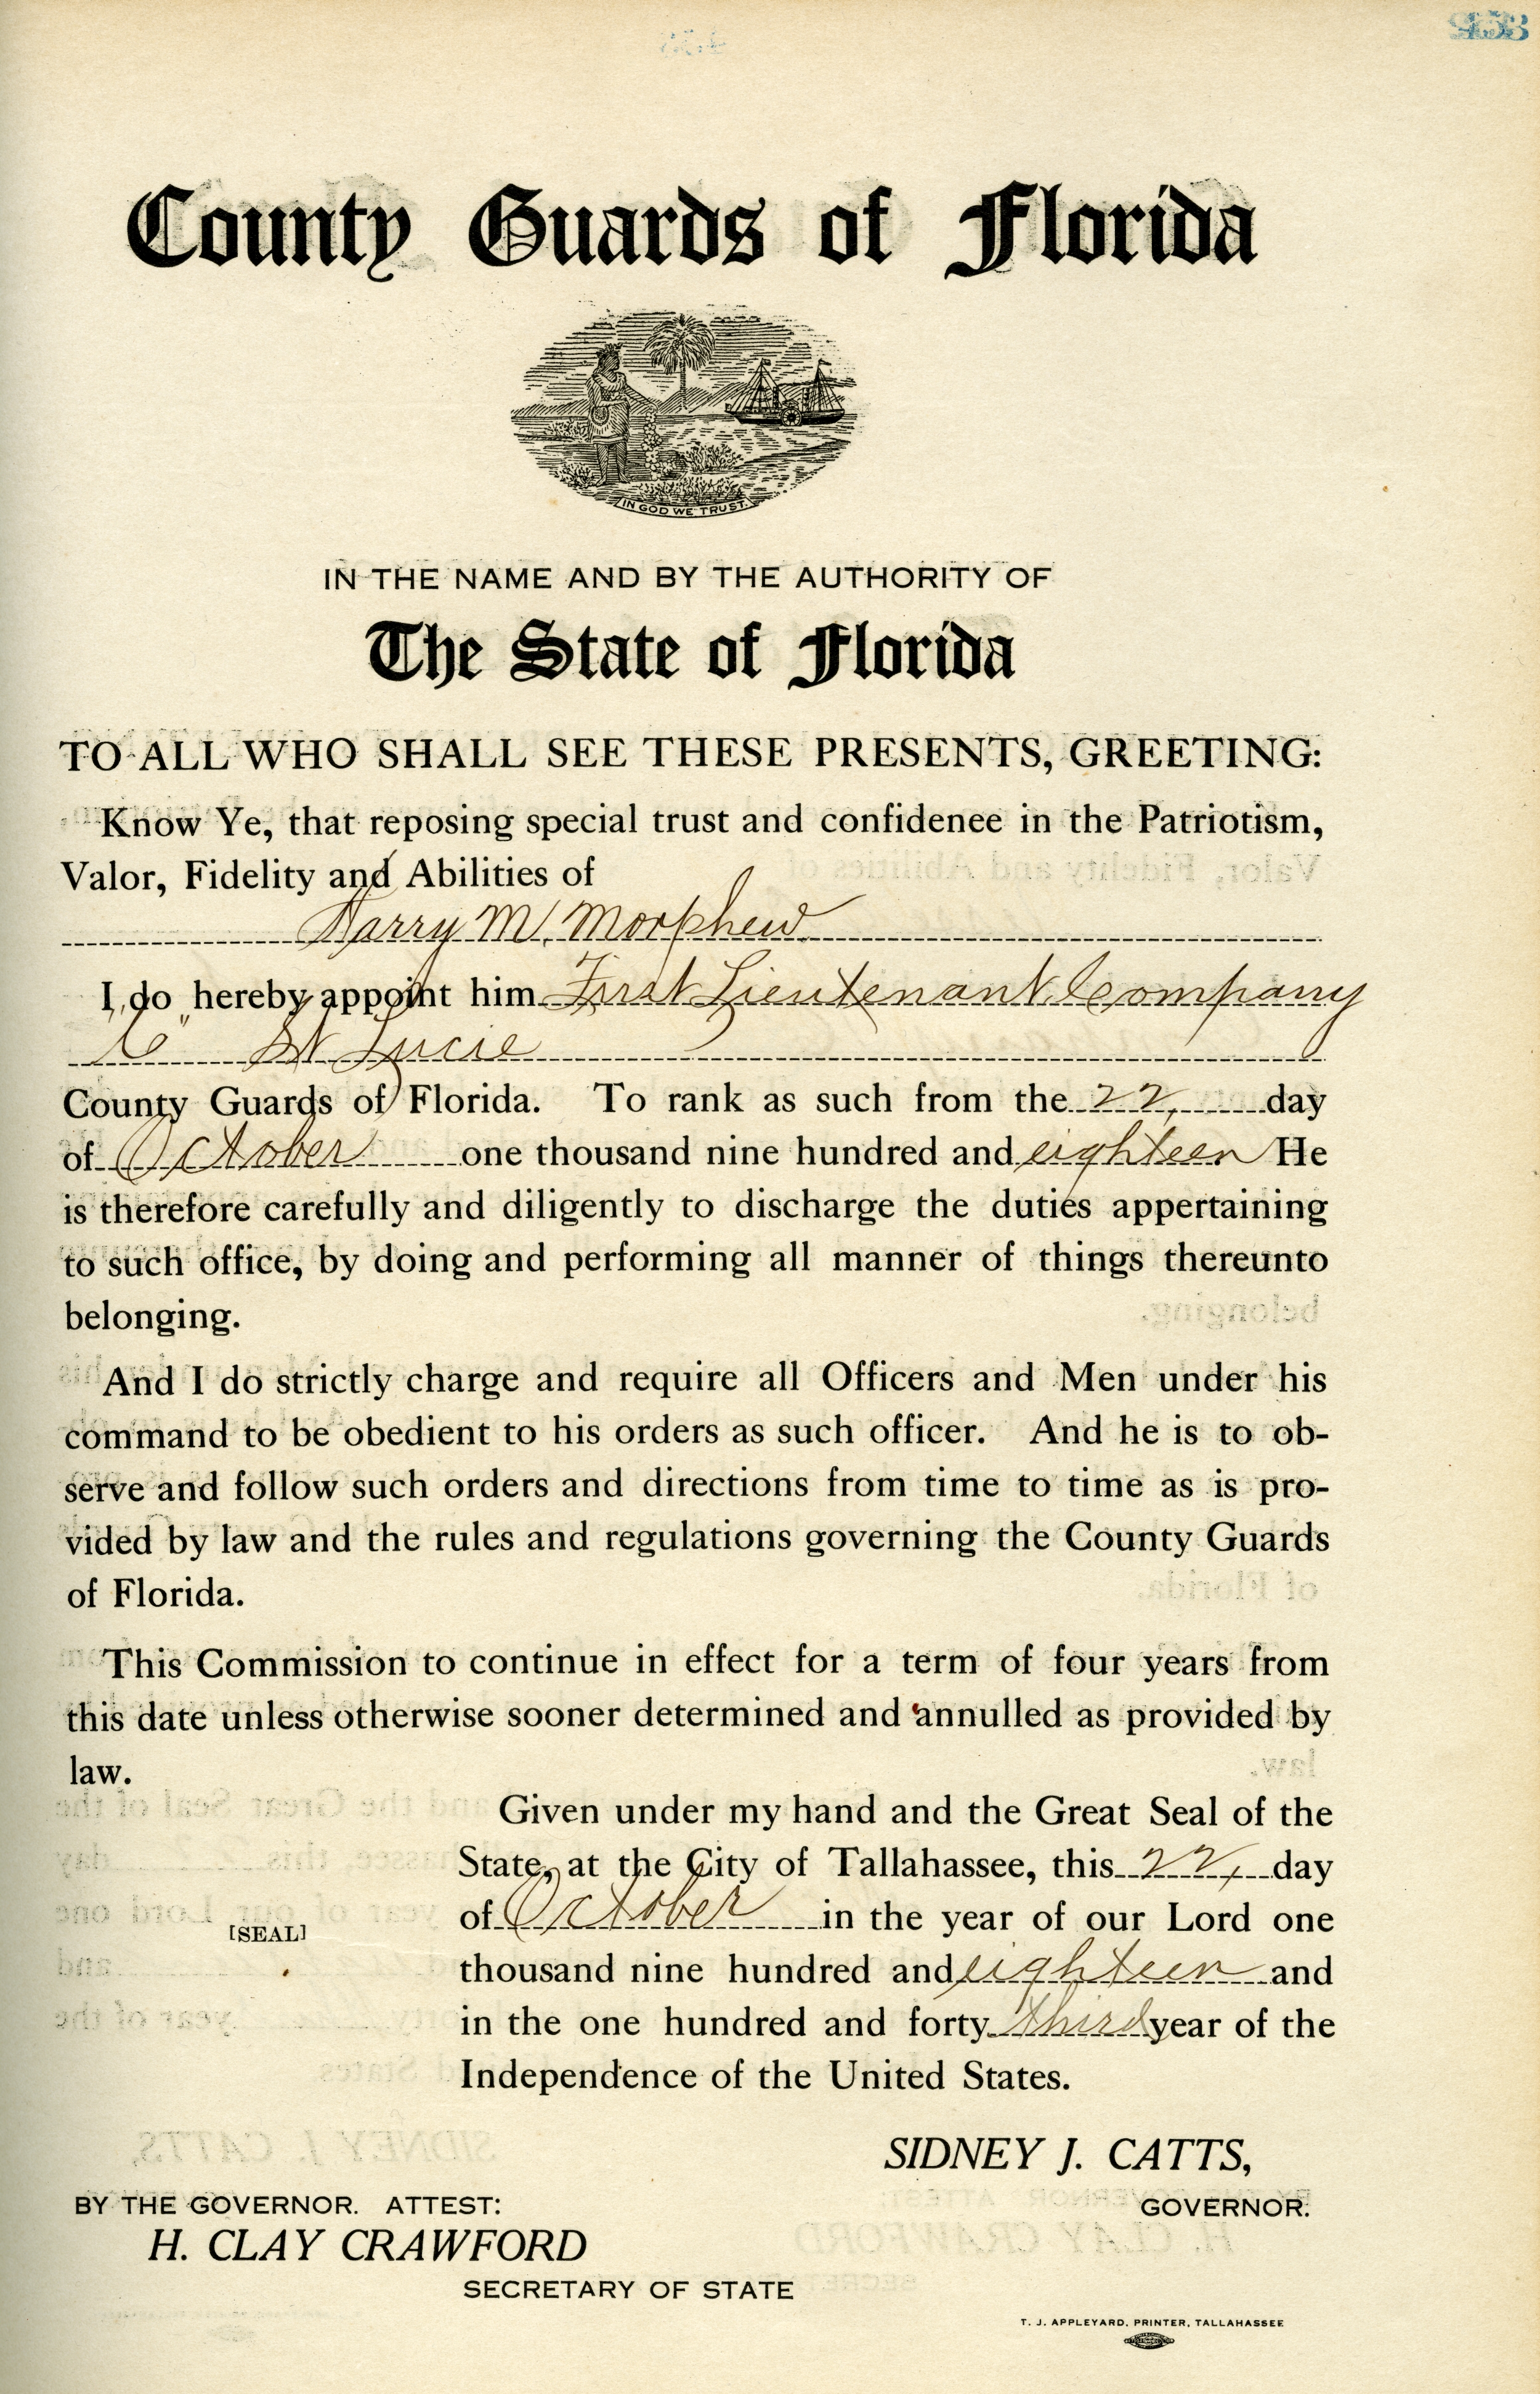 County Guards of Florida
IN GOD WE TRUST.
IN THE NAME AND BY THE AUTHORITY OF
The State of Florida
TO ALL WHO SHALL SEE THESE PRESENTS, GREETING:
Know Ye, that reposing special trust and confidenee in the Patriotism,
Valor, Fidelity and Abilities of
Harry M. Morphew
I do hereby appoint him First Lieutenant Company
"C" St Lucie
County Guards of Florida. To rank as such from the 22, day
of October one thousand nine hundred and eighteen He
is therefore carefully and diligently to discharge the duties appertaining
to such office, by doing and performing all manner of things thereunto
belonging.
And I do strictly charge and require all Officers and Men under his
command to be obedient to his orders as such officer. And he is to ob-
serve and follow such orders and directions from time to time as is pro-
vided by law and the rules and regulations governing the County Guards
of Florida.
This Commission to continue in effect for a term of four years from
this date unless otherwise sooner determined and annulled as provided by
law.
Given under my hand and the Great Seal of the
State, at the City of Tallahassee, this 22, day
of October in the year of our Lord one
[SEAL]
thousand nine hundred and eighteen and
in the one hundred and forty third year of the
Independence of the United States.
SIDNEY J. CATTS,
BY THE GOVERNOR. ATTEST: GOVERNOR.
H. CLAY CRAWFORD
SECRETARY OF STATE
T. J. APPLEYARD, PRINTER, TALLAHASSEE